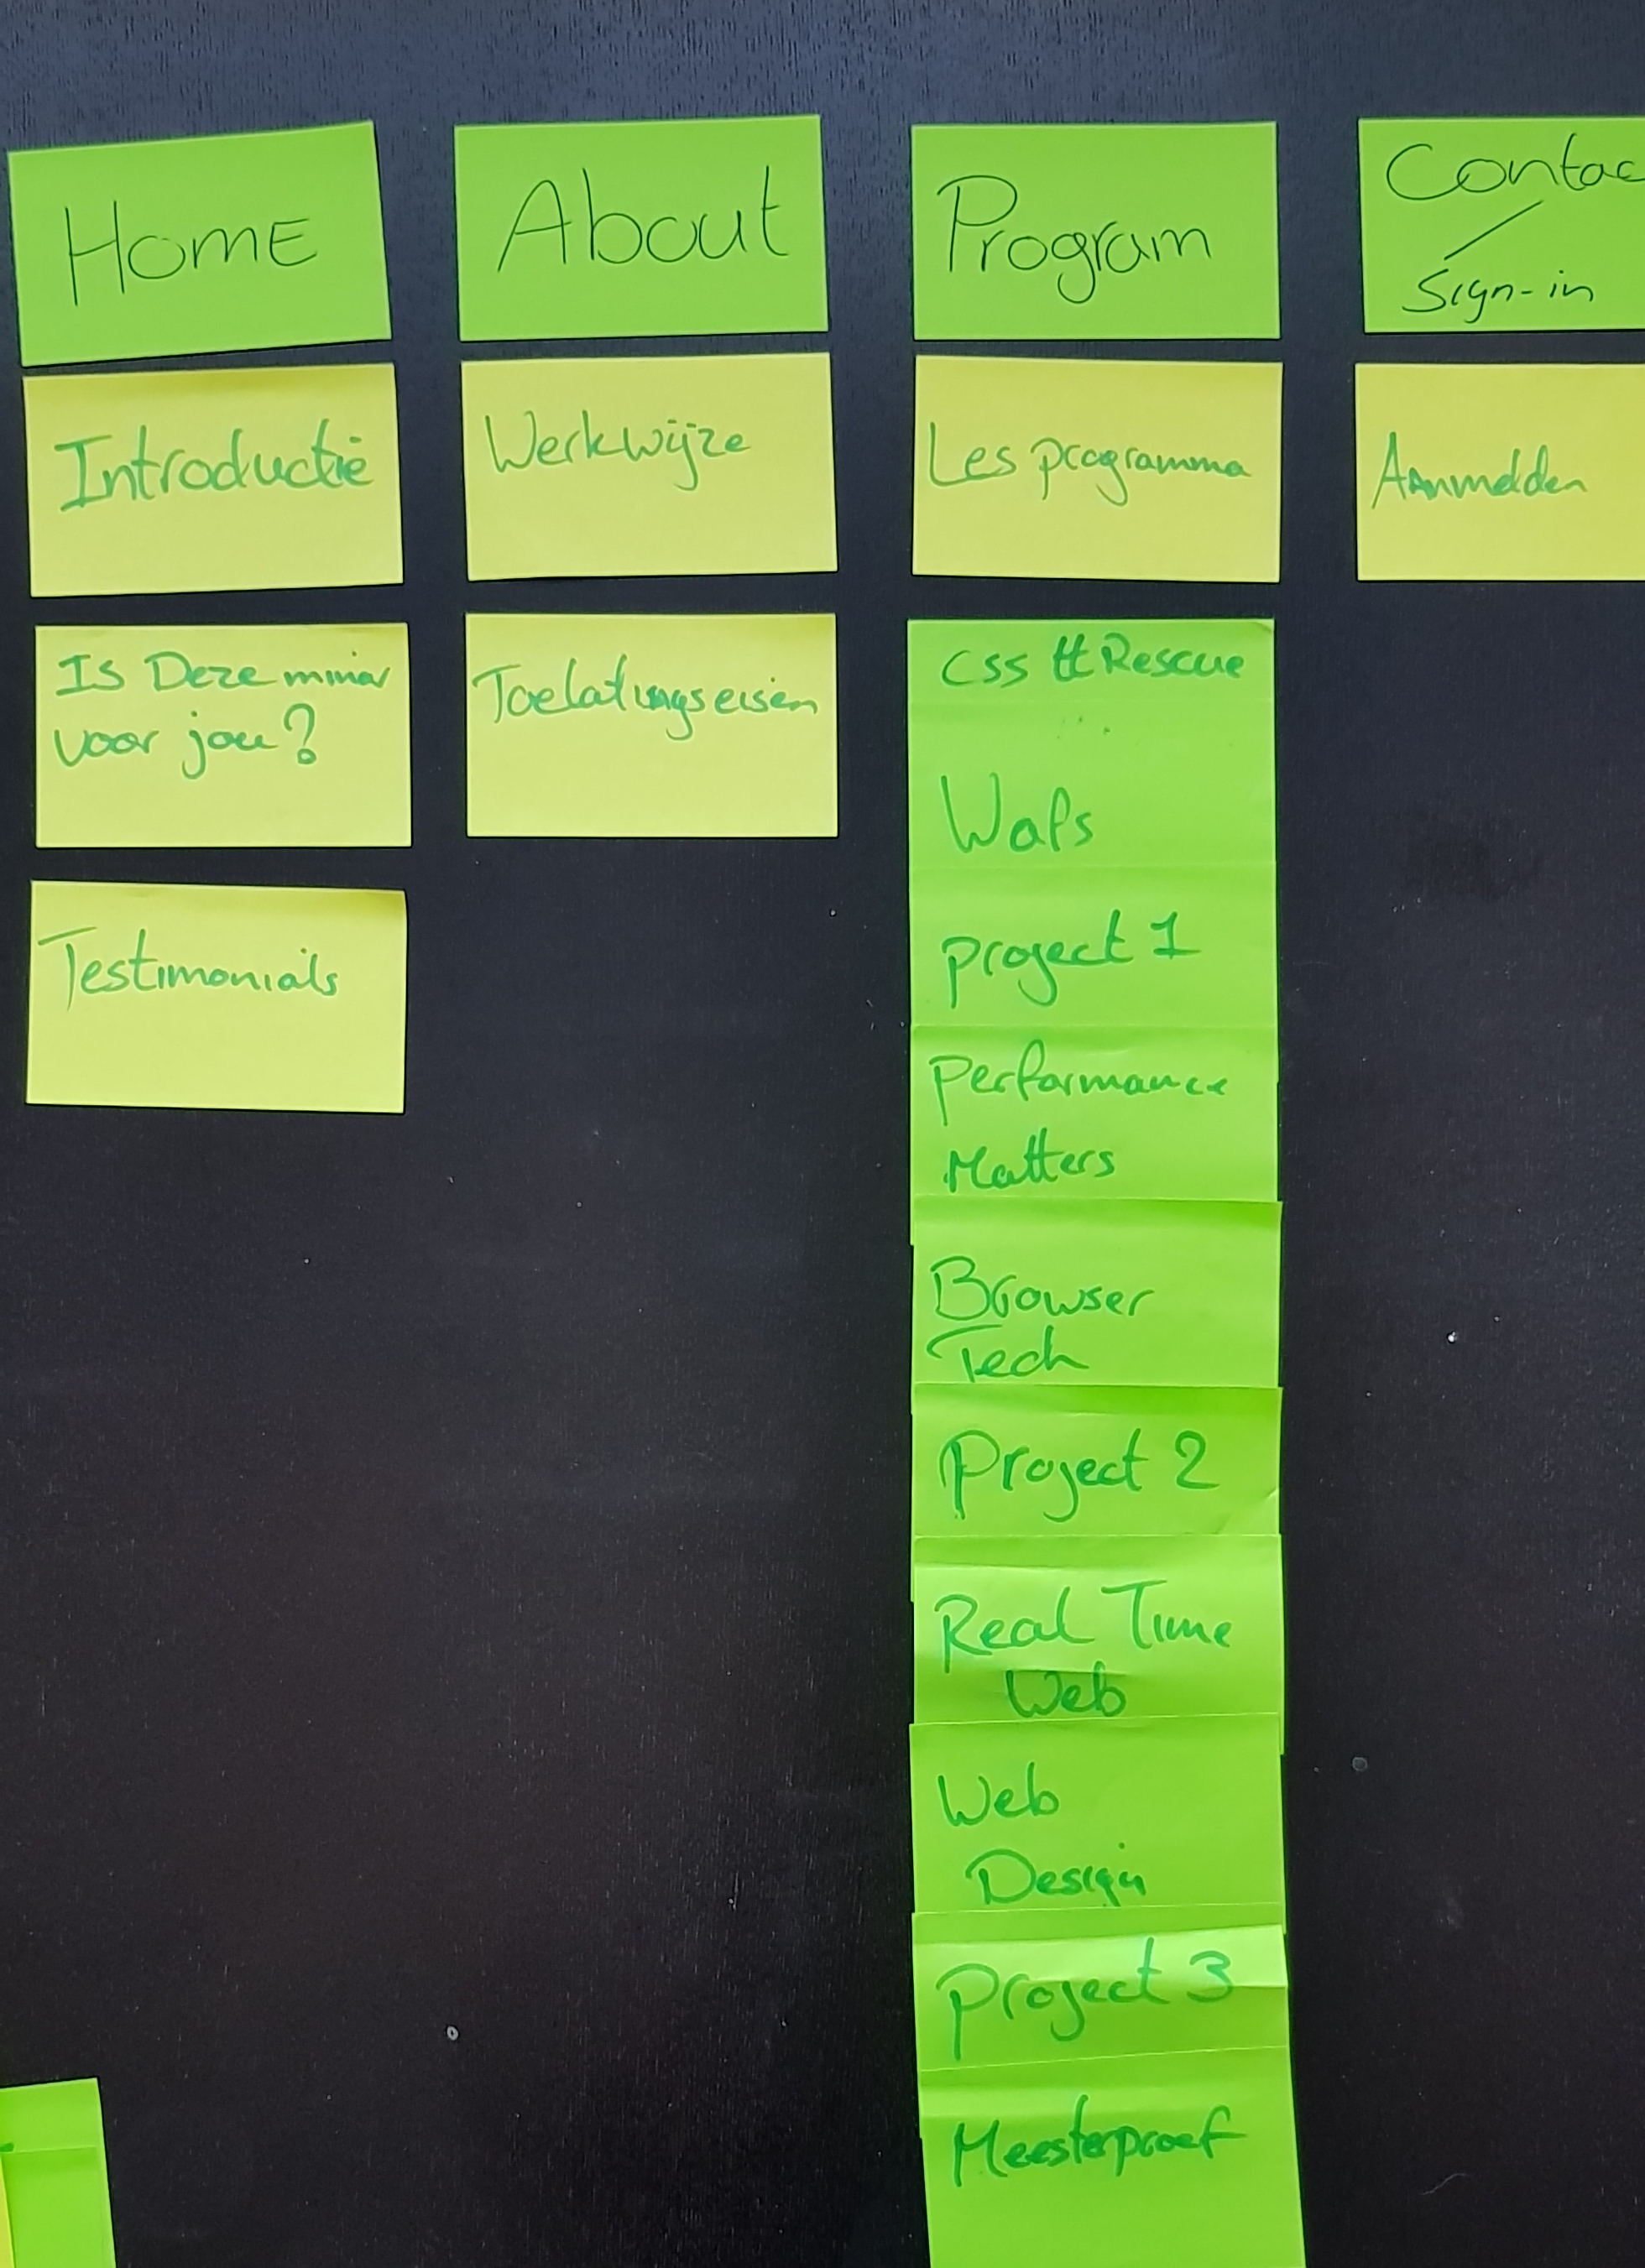 Home
Introductie
Is Deze minor
voor jou?
Testimonials
About
Werkwijze
Toelatingseisen
Program
Les programma
Css ttRescue
Wafs
project 1
Performance
Matters
Browser
Tech
Project 2
Real Time
Web
Web
Design
Project 3
Meesterproef
Contac
/
Sign-in
Aanmelden